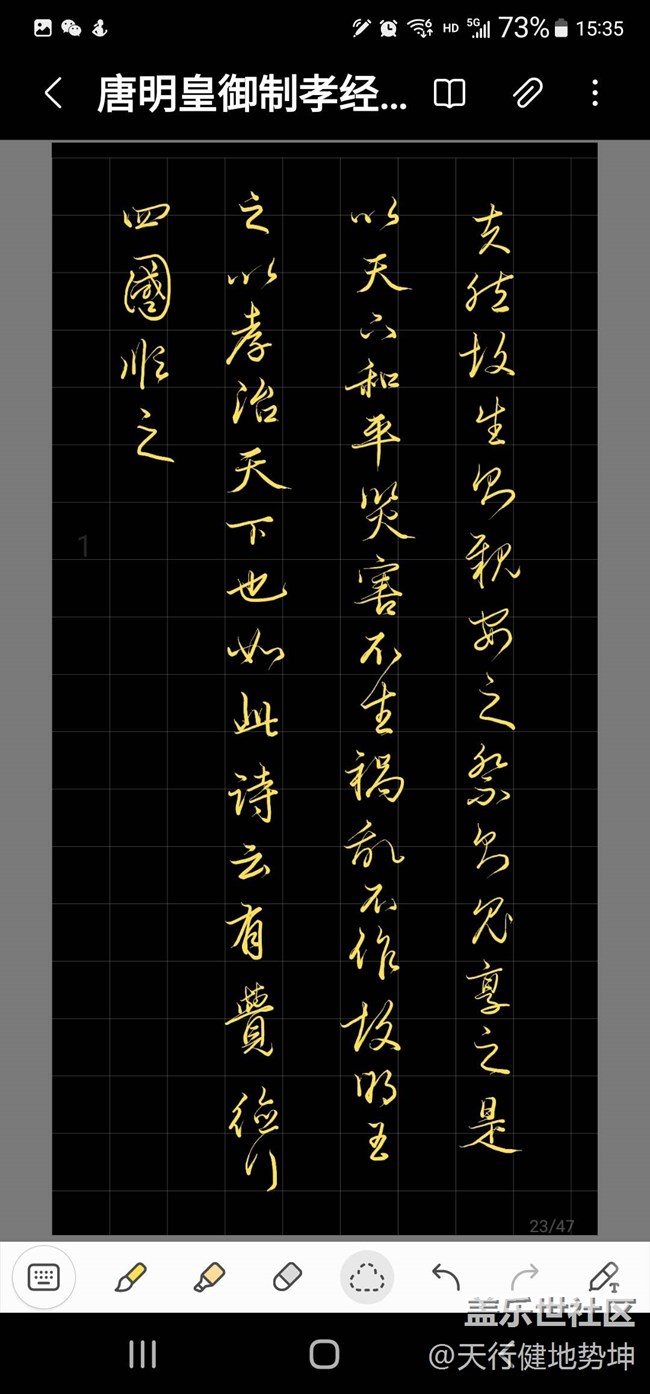 HD 5G 73% 15:35
唐明皇御制孝经...
夫然故生则親安之祭则鬼享之是
以天下和平災害不生祸乱不作故明王
之以孝治天下也如此诗云有覺德行
四國順之
1
23/47
盖乐世社区
@天行健地势坤